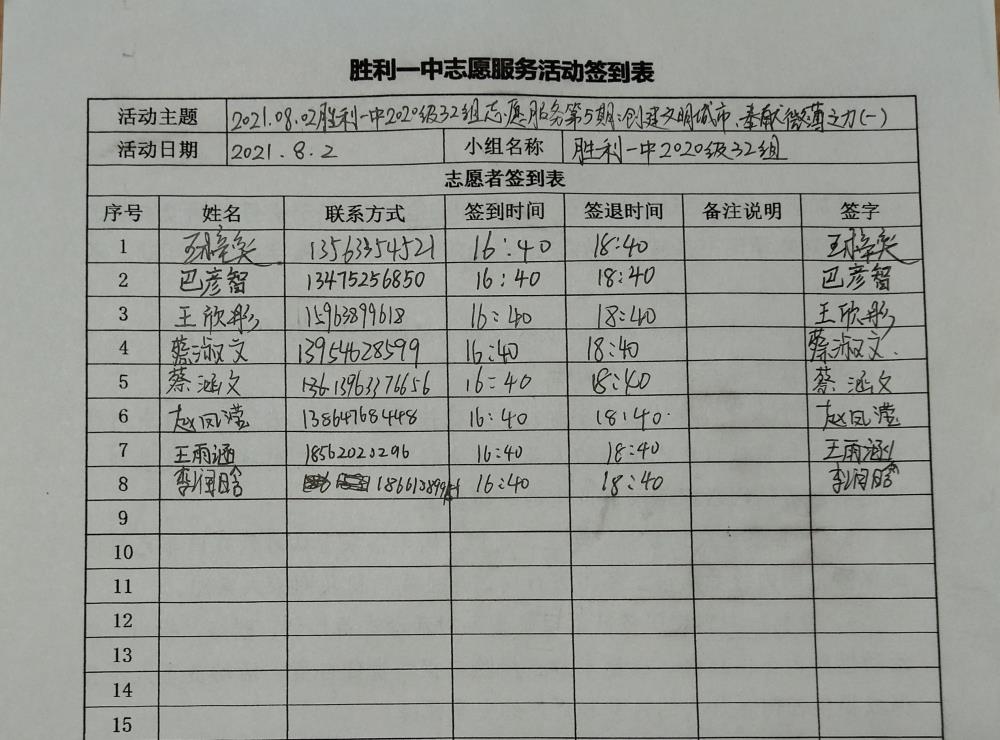 胜利一中志愿服务活动签到表
活动主题 2021.08.02胜利一中2020级32组志愿服务第5期:创建文明城市、奉献微薄之力(一)
活动日期 2021.8.2 小组名称 胜利一中2020级32组
志愿者签到表
序号 姓名 联系方式 签到时间 签退时间 备注说明 签字
1 13563354521 16:40 18:40
2 巴彦智 13475256850 16:40 18:40 巴彦智
3 王欣彤 15963899618 16:40 18:40 王欣彤
4 蔡淑文 13954628599 16:40 18:40 蔡淑文.
5 蔡涵文 13963376656 16:40 18:40 蔡涵文
6 赵凤滢 13864768448 16:40 18:40 赵凤滢
7 王雨涵 18562020296 16:40 18:40 王雨涵
8 李润晗 16:40 18:40 李润晗
9
10
11
12
13
14
15